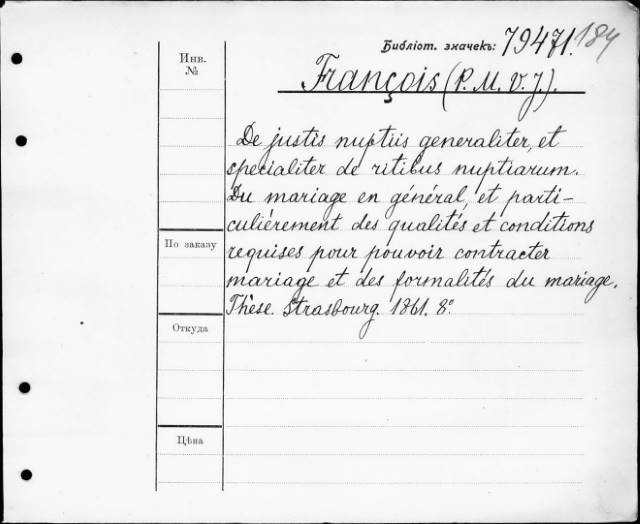 Библіот. значекъ: 79471. 184
Инв. №
François (P. M. V. J.).
De justis nuptiis generaliter, et
specialiter de ritibus nuptiarum.
Du mariage en général, et parti-
culiérement des qualités et conditions
requises pour pouvoir contracter
mariage et des formalités du mariage.
Thèse. Strasbourg. 1861. 8°
По заказу
Откуда
Цѣна